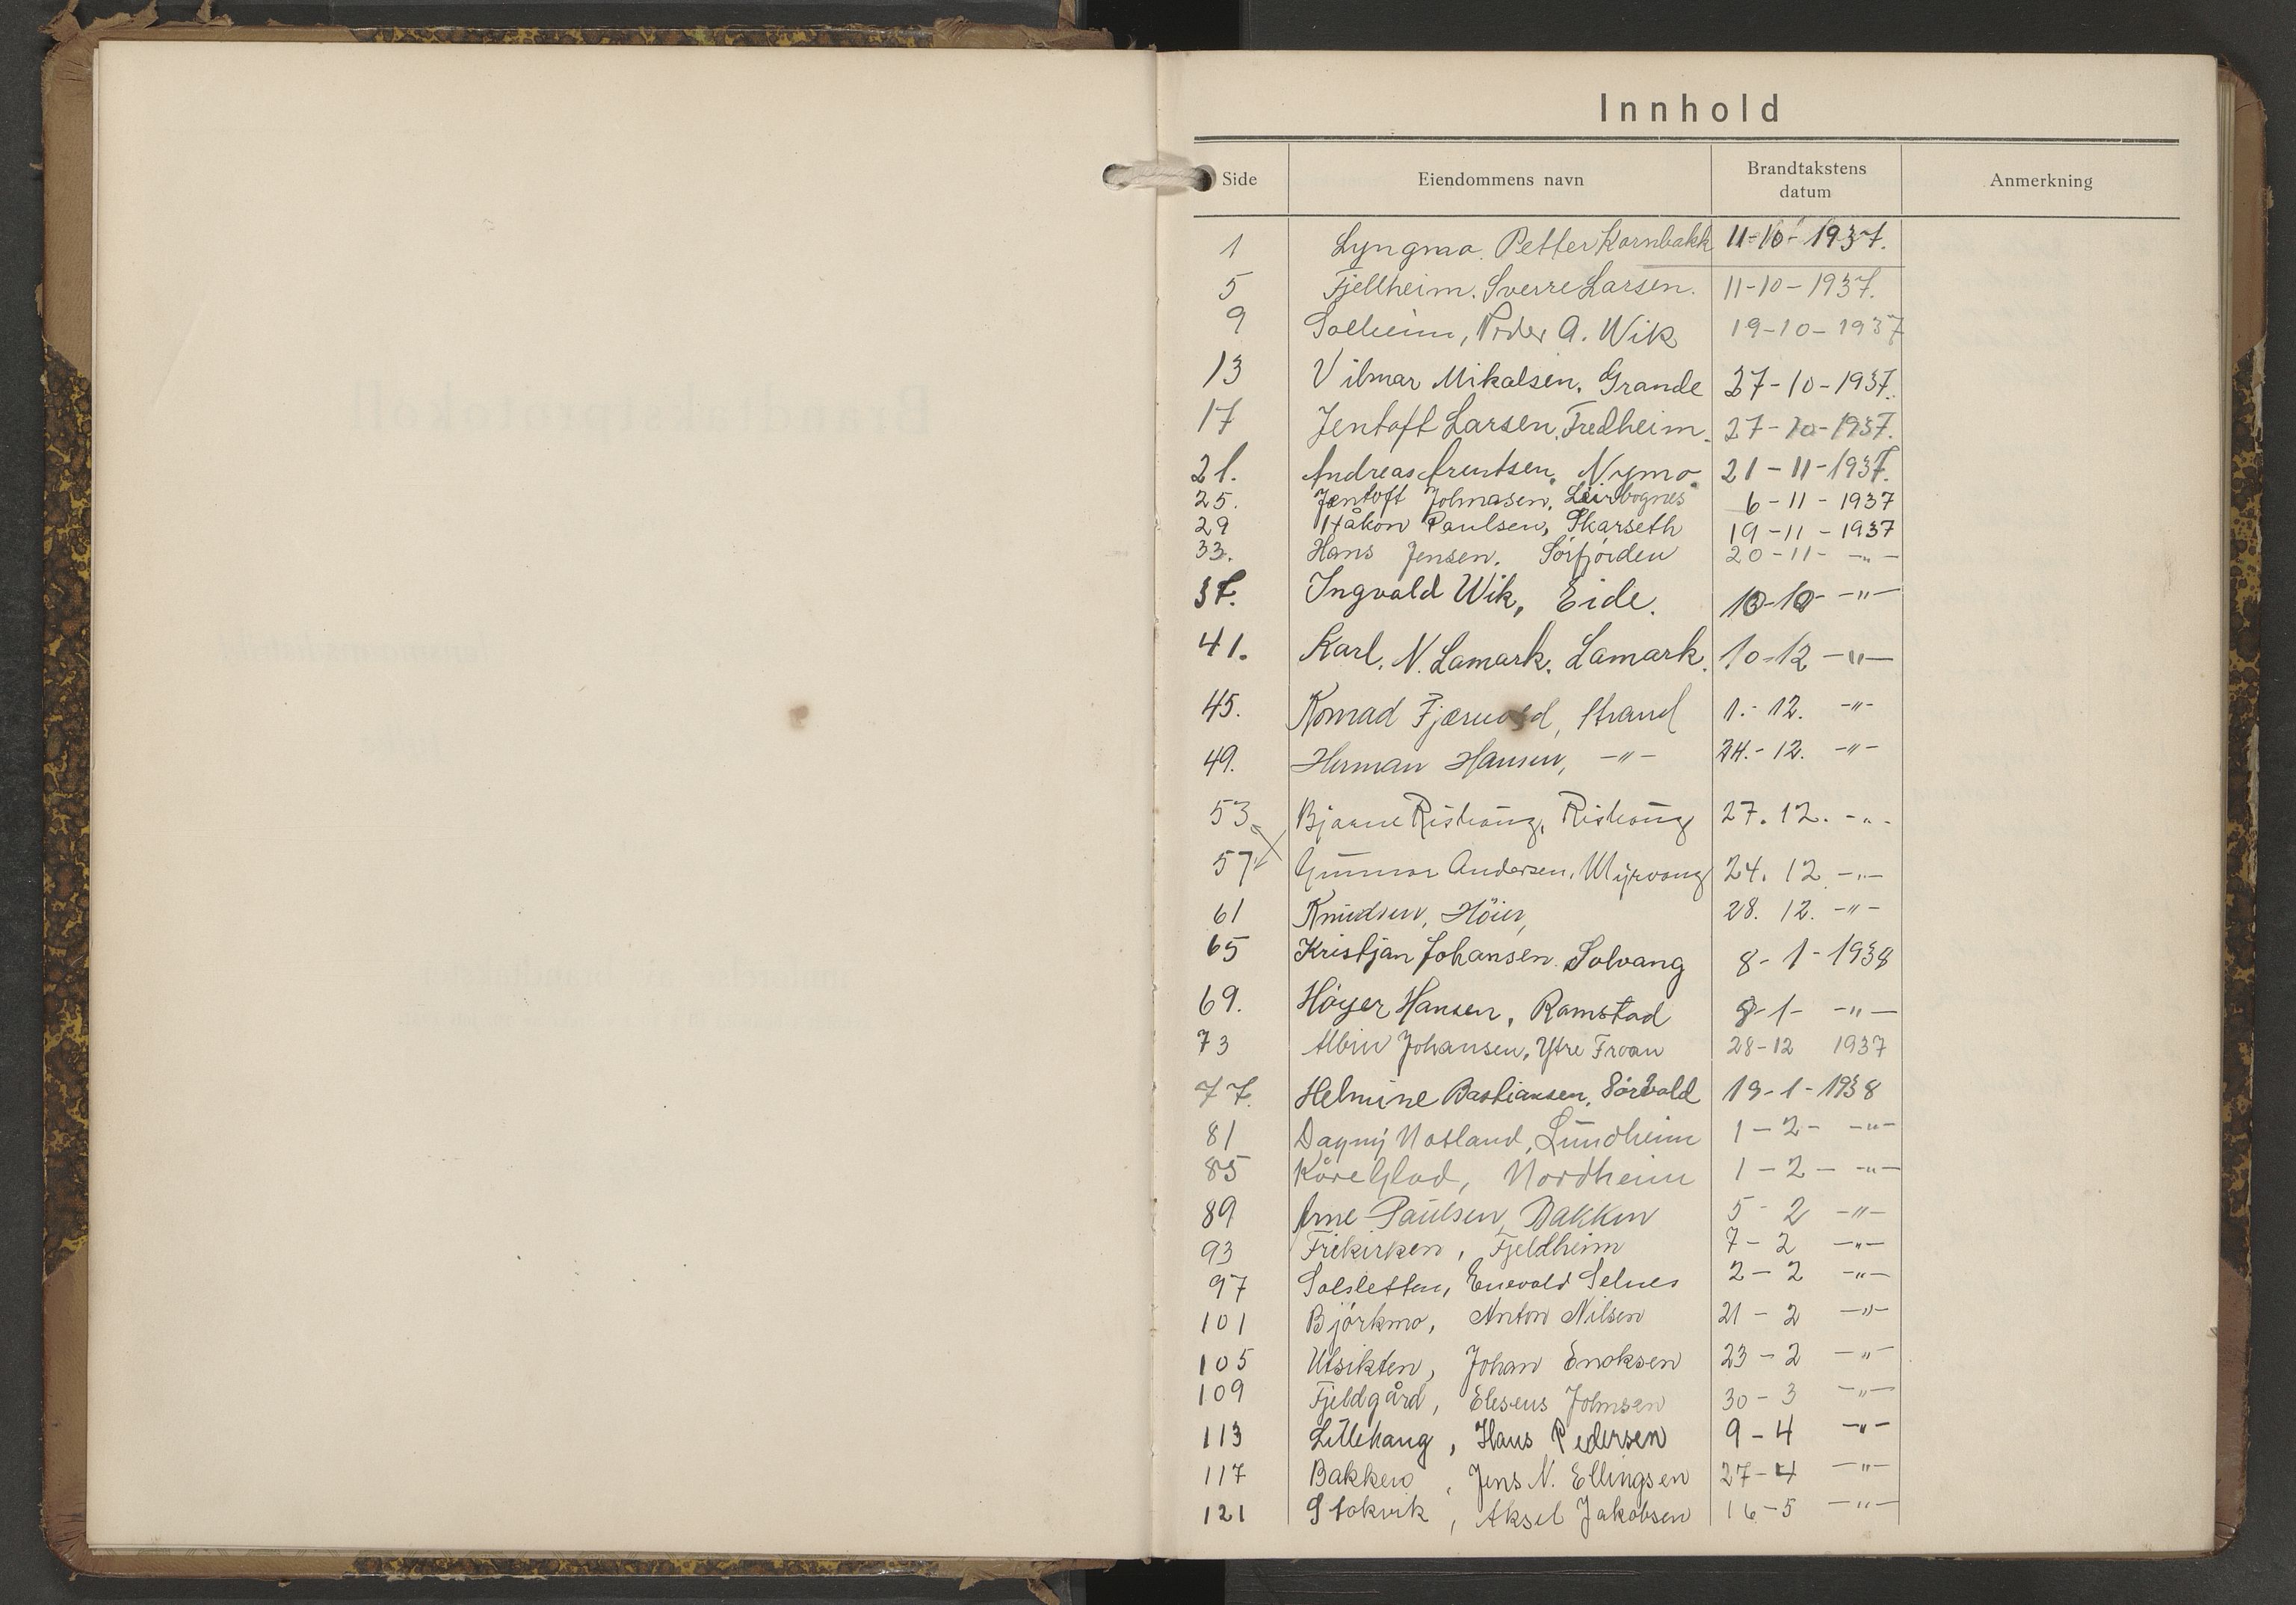 Innhold
Side Eiendommens navn Brandtakstens datum Anmerkning
1 Lyngmo. Petter Kornbakk 11-10-1937.
5 Fjellheim. Sverre Larsen. 11-10-1937.
9 Solheim, Peder A. Wik 19-10-1937
13 Vilmar Mikalsen. Grande 27-10-1937.
17 Jentoft Larsen. Fredheim. 27-10-1937.
21. Andreas Arentsen, Nymo. 21-11-1937.
25. Jentoft Johnasen, Leirbognes 6-11-1937
29 Håkon Paulsen, Skarseth 19-11-1937
33. Hans Jensen. Sörfjörden 20-11- -"-
37. Ingvald Wik, Eide. 10-10- -"-
41. Karl. N. Lamark. Lamark. 10-12 -"-
45. Konrad Fjærvold, Strand 1.-12. -"-
49. Herman Hansen, -"- 24.-12. -"-
53 Bjarne Rishaug, Rishaug 27. 12. -"-
57 Gunnar Andersen, Myrvang 24. 12 -"-
61 Knudsen, Höier, 28. 12. -"-
65 Kristjan Johansen. Solvang 8-1-1938
69. Höyer Hansen, Ramstad 8-1- -"-
73 Albin Johansen, Ytre Froan 28-12 1937
77. Helmine Bastiansen. 19-1-1938
81 Dagny Notland, Lundheim 1-2- -"-
85 Kåre Glad, Nordheim 1-2- -"-
89 Arne Paulsen, Bakken 5-2 -"-
93 Frikirken, Fjeldheim 7-2 -"-
97 Solsletten, Enevold Selnes 2-2 -"-
101 Björkmo, Anton Nilsen 21-2 -"-
105 Utsikten, Johan Enoksen 23-2 -"-
109 Fjeldgård, Eleseus Johnsen 30-3 -"-
113 Lillehaug, Hans Pedersen 9-4 -"-
117 Bakken, Jens N. Ellingsen 27-4 -"-
121 Stokvik, Aksel Jakobsen 16-5 -"-